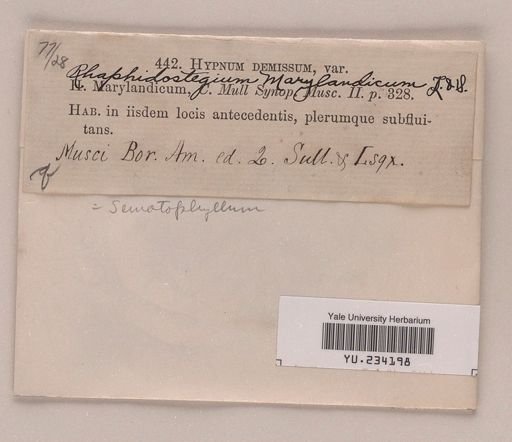 77/28
442. HYPNUM DEMISSUM, var.
Rhaphidostegium Marylandicum L. & J.
H. Marylandicum, C. Mull Synop. Musc. II. p. 328.
HAB. in iisdem locis antecedentis, plerumque subflui-
tans.
Musci Bor. Am. ed. 2. Sull. & Lsqx.
= Sematophyllum
Yale University Herbarium
YU.234198